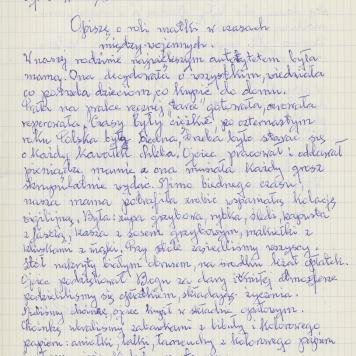 Opiszę o roli matki w czasach
międzywojennych.
W naszej rodzinie największym autorytetem była
mama. Ona decydowała o wszystkim, wiedziała
co potrzeba dzieciom, co kupić do domu.
Prała na pralce ręcznej "tara" gotowała, cerowała
reperowała. Czasy były ciężkie po czternastym
roku Polska była biedna, trzeba było starać się
o każdy kawałek chleba. Ojciec pracował i oddawał
pieniądze mamie a ona musiała każdy grosz
skrupulatnie wydać. Mimo biednego czasu
nasza mama potrafiła zrobić wspaniałą kolację
wigilijną. Była: zupa grzybowa, rybka, śledź, kapusta
z , kasza z sosem grzybowym, makiełki z
kluskami z makiem. Przy stole zasiedliśmy wszyscy.
Stół nakryty białym obrusem, na środku leżał opłatek.
Ojciec podziękował Bogu za dany
podzieliliśmy się opłatkiem, składając życzenia.
choinkę, ojciec kupił w składzie opałowym.
Choinkę ubraliśmy zabawkami z bibuły i kolorowego
papieru: aniołki, lalki, łańcuchy z kolorowego papieru